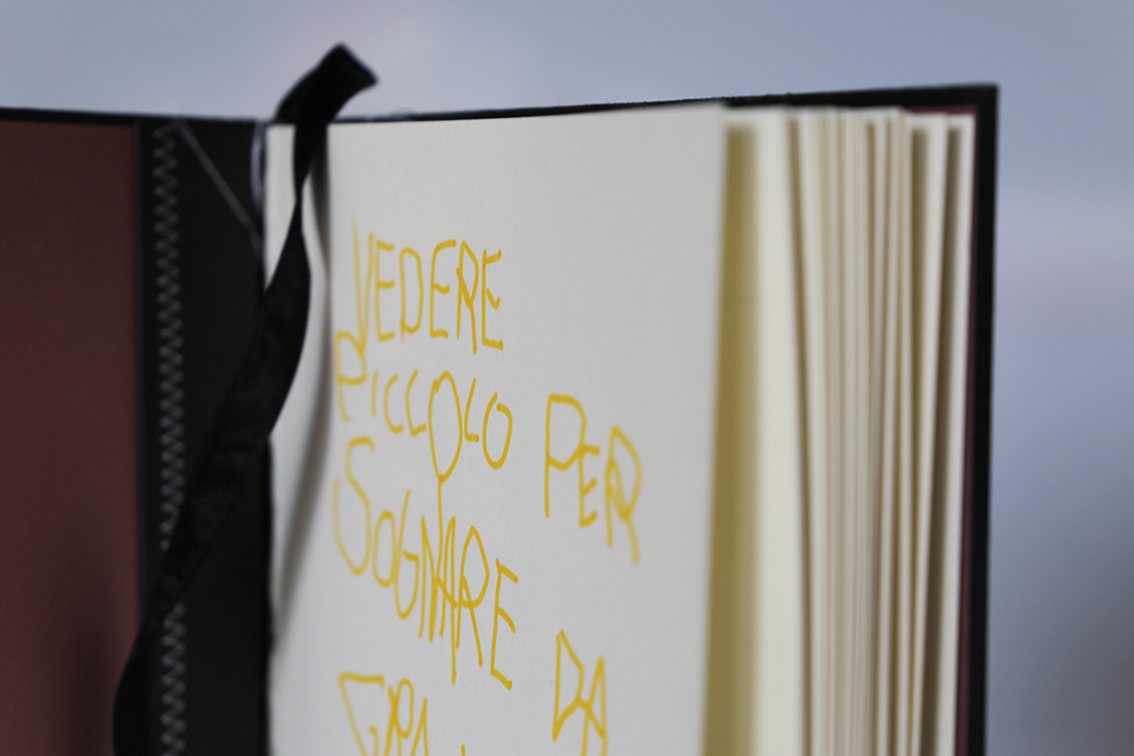 VEDERE
PICCOLO PER
SOGNARE DA